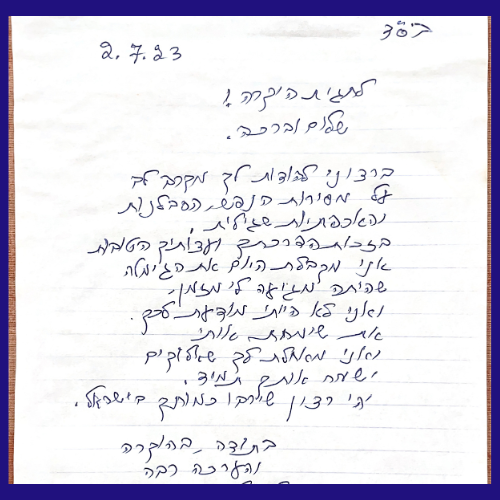 בס"ד
2.7.23
לחגית היקרה!
שלום וברכה.
ברצוני להודות לך מקרב לב
על מסירות הנפש, הסבלנות
והאכפתיות שגילית,
בזכות הדרכתך ועצותיך הטובות
אני מקבלת היום את הגימלה
שהיתה מגיעה לי מזמן,
ואני לא הייתי מודעת לכך.
את שימחת אותי
ואני מאחלת לך שאלוקים
ישמח אותך תמיד.
יהי רצון שירבו כמותך בישראל.
בתודה, בהוקרה
והערכה רבה